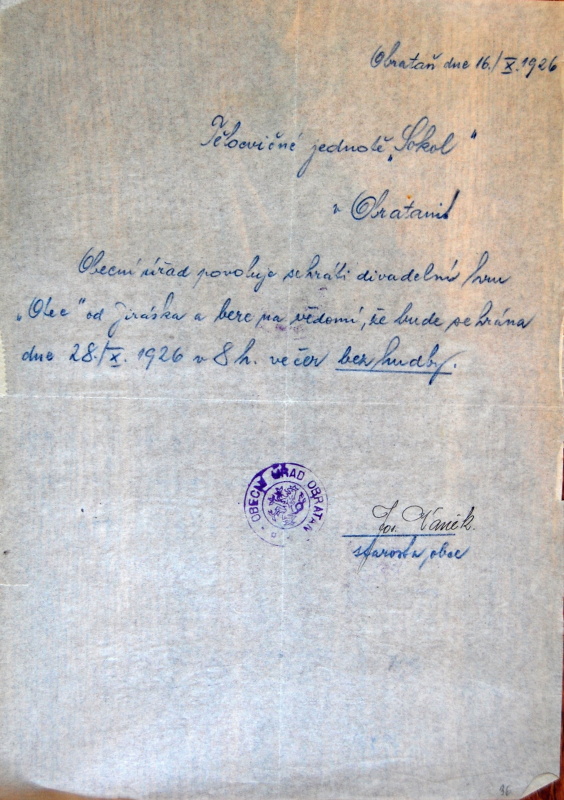 Obrataň dne 16./X. 1926
Tělocvičné jednotě „Sokol"
v Obratani
Obecní úřad povoluje sehráti divadelní hru
„Otec" od Jiráska a bere na vědomí, že bude sehrána
dne 28./X. 1926 v 8 h. večer bez hudby.
OBECNÍ ÚŘAD OBRATAŇ
Jos. Vaněk.
starosta obce
96.